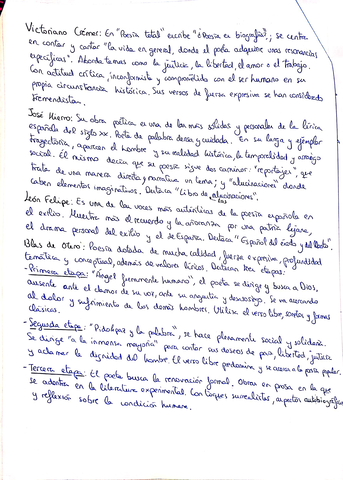 Victoriano Crémer: En "Poesía total" escribe "¿Poesía es biografía?, se centra
en contar y cantar "la vida en general, donde el poeta adquiere unas resonancias
específicas". Aborda temas como la justicia, la libertad, el amor o el trabajo.
Con actitud crítica, inconformista y comprometido con el ser humano en su
propia circunstancia histórica. Sus versos de fuerza expresiva se han considerado
Tremendistas.
José Hierro: Su obra poética es una de las más sólidas y personales de la lírica
española del siglo XX. Poeta de palabra densa y cuidada. En su larga y ejemplar
trayectoria, aparecen el hombre y su realidad histórica, la temporalidad y arraigo
social. Él mismo decía que su poesía sigue dos caminos: "reportajes", que
trata de una manera directa y narrativa un tema; y "alucinaciones" donde
caben elementos imaginativos. Destaca "Libro de las alucinaciones".
León Felipe: Es una de las voces más auténticas de la poesía española en
el exilio. Muestra más el recuerdo y la añoranza por una patria lejana,
el drama personal del exilio y el de España. Destaca "Español del éxodo y del llanto".
Blas de Otero: Poesía dotada de mucha calidad, fuerza expresiva, profundidad
temática y conceptual, además de valores líricos. Destacan tres etapas:
- Primera etapa: "Ángel fieramente humano", el poeta se dirige y busca a Dios,
ausente ante el clamor de su voz, ante su angustia y desasosiego. Se va acercando
al dolor y sufrimiento de los demás hombres. Utiliza el verso libre, sonetos y formas
clásicas.
- Segunda etapa: "Pido la paz y la palabra", se hace plenamente social y solidario.
Se dirige "a la inmensa mayoría" para cantar sus deseos de paz, libertad, justicia
y aclamar la dignidad del hombre. El verso libre predomina y se acerca a la poesía popular.
- Tercera etapa: El poeta busca la renovación formal. Obras en prosa en la que
se adentra en la literatura experimental. Con toques surrealistas, aspectos autobiográficos
y reflexión sobre la condición humana.